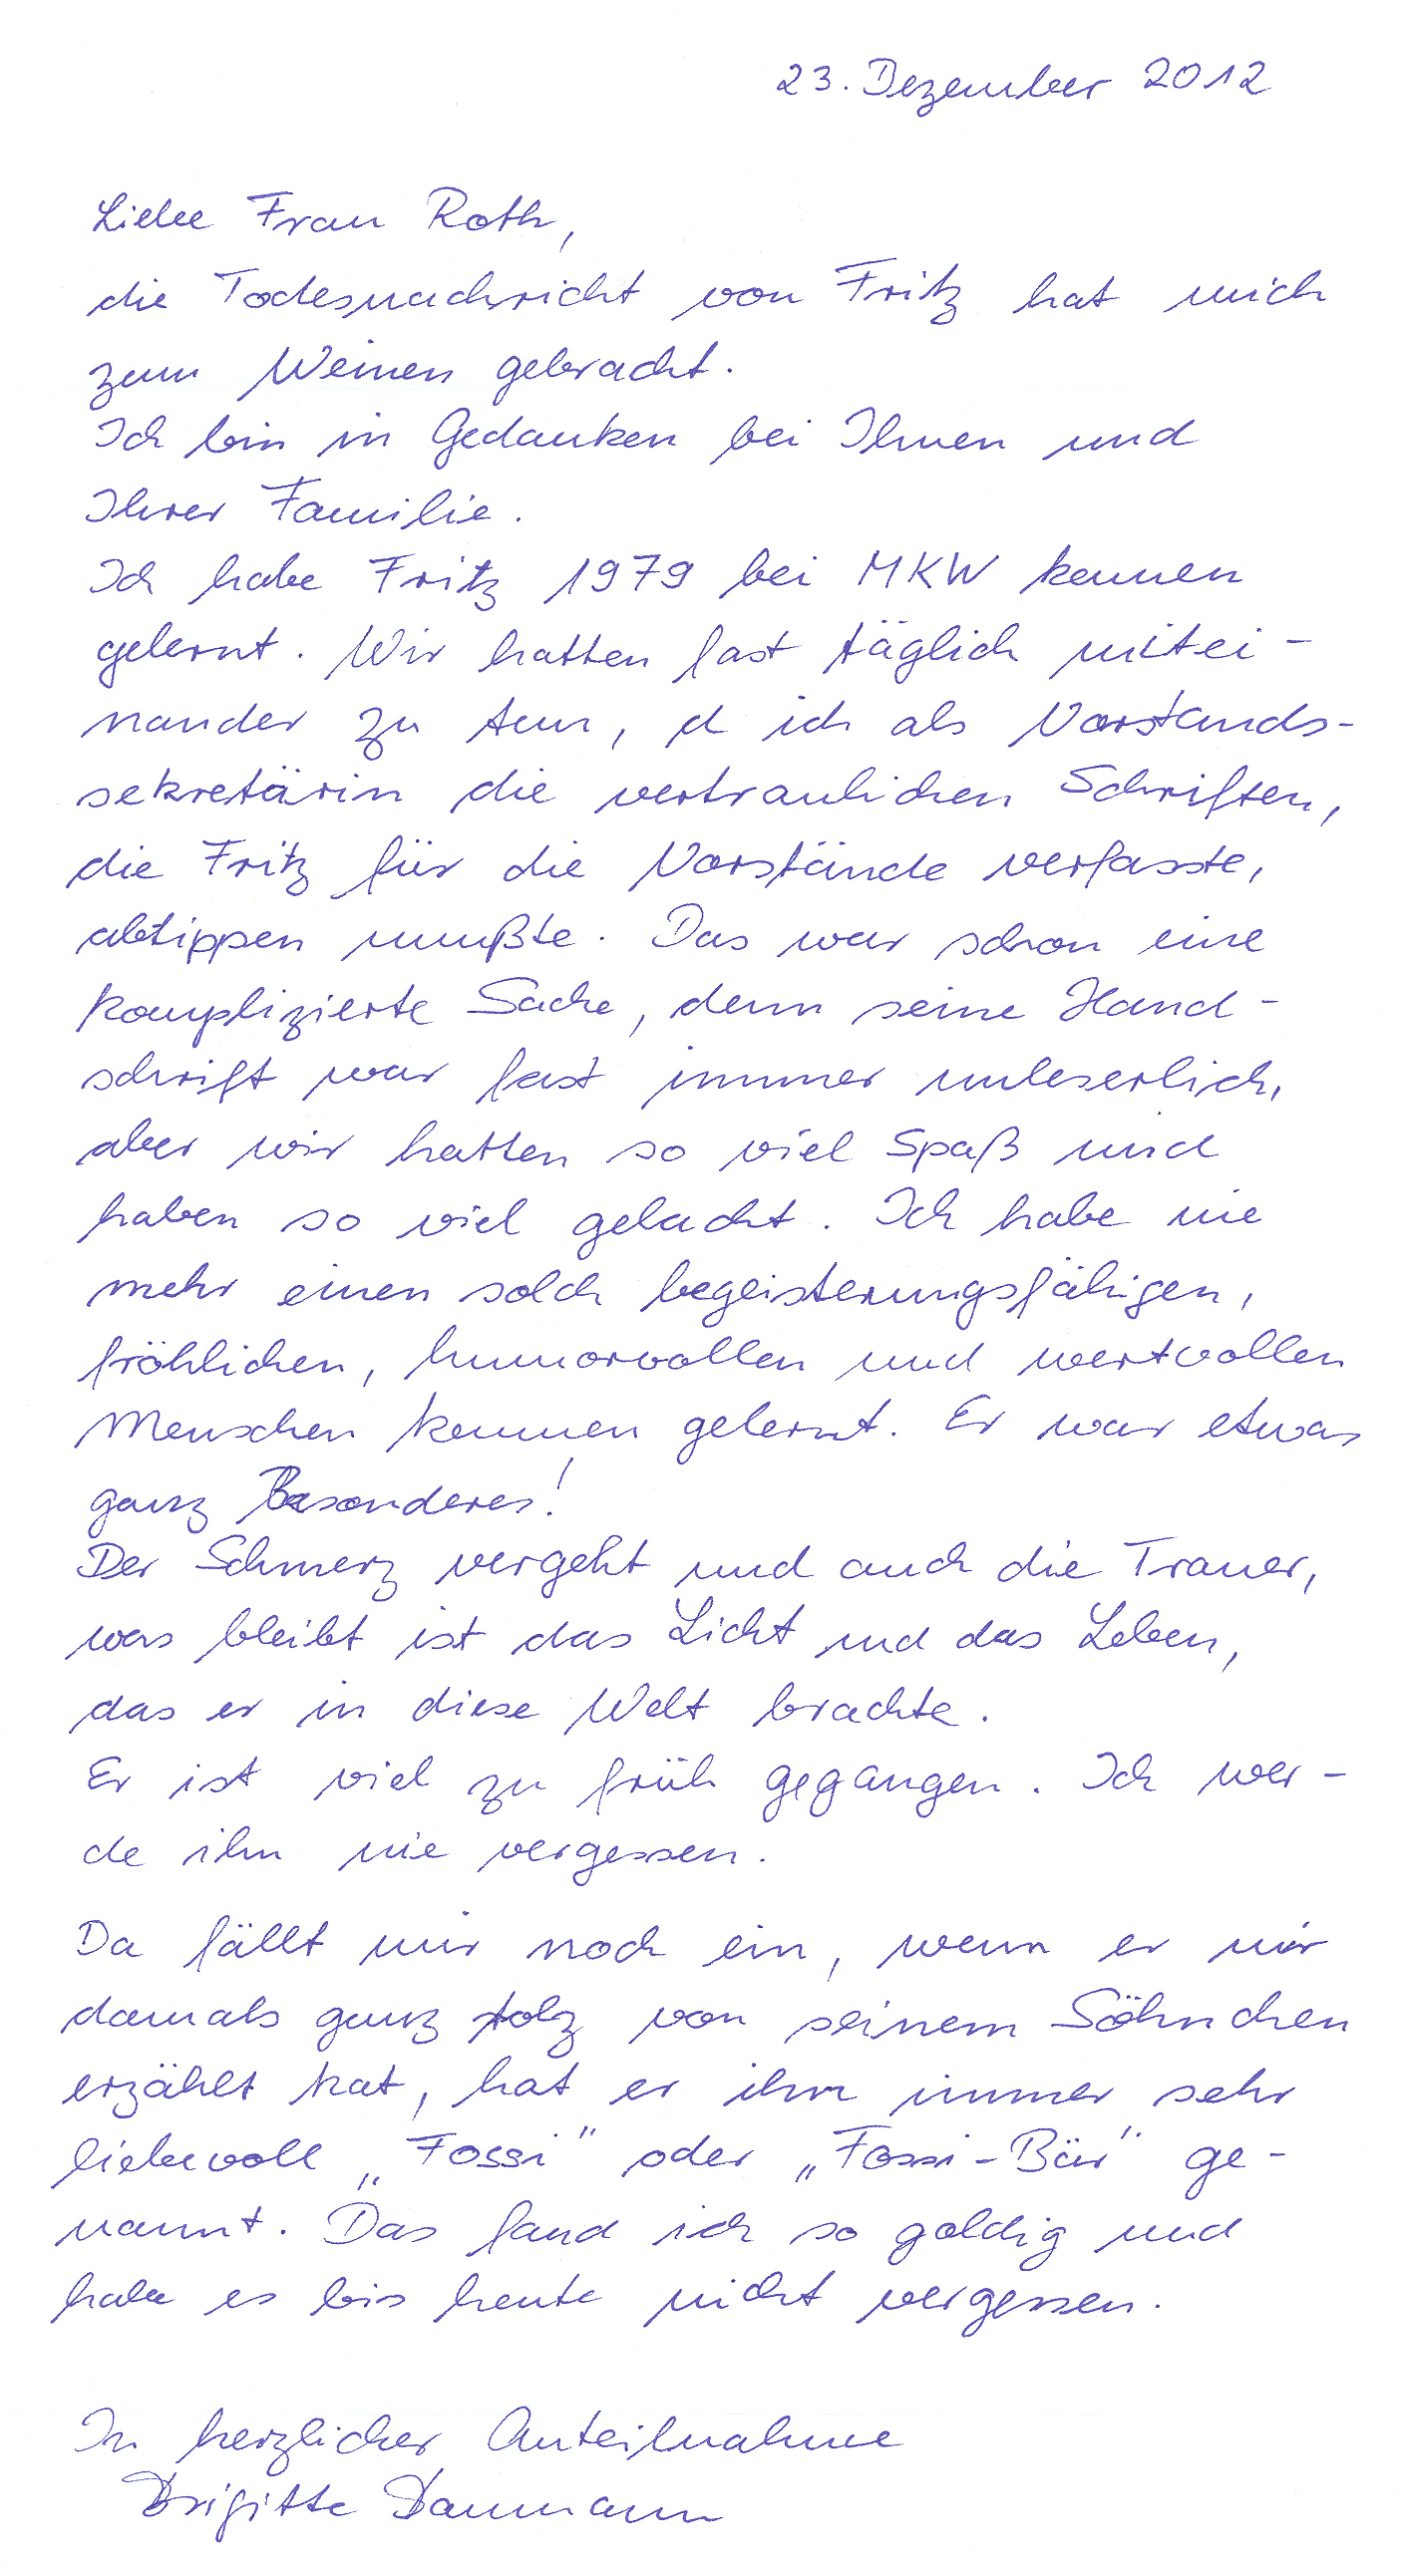 23. Dezember 2012
Liebe Frau Roth,
die Todesnachricht von Fritz hat mich
zum Weinen gebracht.
Ich bin in Gedanken bei Ihnen und
Ihrer Familie.
Ich habe Fritz 1979 bei MKW kennen
gelernt. Wir hatten fast täglich mitei-
nander zu tun, d ich als Vorstands-
sekretärin die vertraulichen Schriften,
die Fritz für die Vorstände verfasste,
abtippen mußte. Das war schon eine
komplizierte Sache, denn seine Hand-
schrift war fast immer unleserlich,
aber wir hatten so viel Spaß und
haben so viel gelacht. Ich habe nie
mehr einen solch begeisterungsfähigen,
fröhlichen, humorvollen und wertvollen
Menschen kennen gelernt. Er war etwas
ganz Besonderes!
Der Schmerz vergeht und auch die Trauer,
was bleibt ist das Licht und das Leben,
das er in diese Welt brachte.
Er ist viel zu früh gegangen. Ich wer-
de ihn nie vergessen.
Da fällt mir noch ein, wenn er mir
damals ganz stolz von seinem Söhnchen
erzählt hat, hat er ihn immer sehr
liebevoll „Fossi" oder „Fossi-Bär" ge-
nannt. Das fand ich so goldig und
habe es bis heute nicht vergessen.
In herzlicher Anteilnahme
Brigitte Daumann